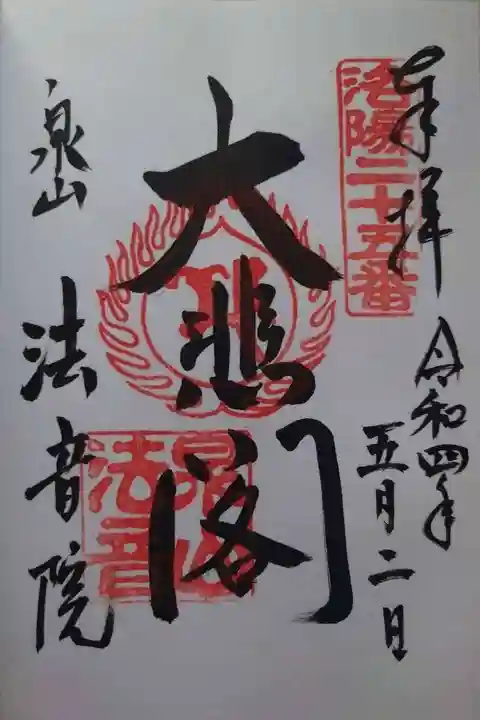 奉拝
洛陽二十五番
令和四年
五月二日
大悲閣
泉山
法音院
泉山
法音